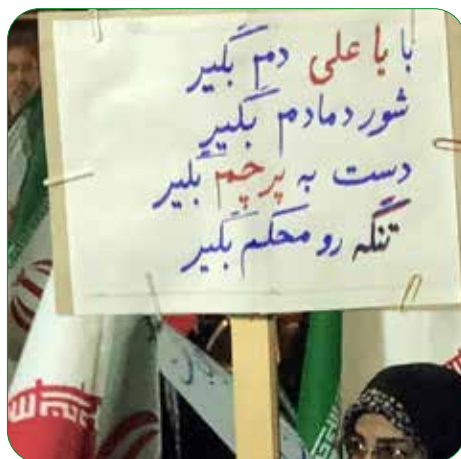 با یا علی دم بگیر
شور دمادم بگیر
دست به پرچم بگیر
تنگه رو محکم بگیر